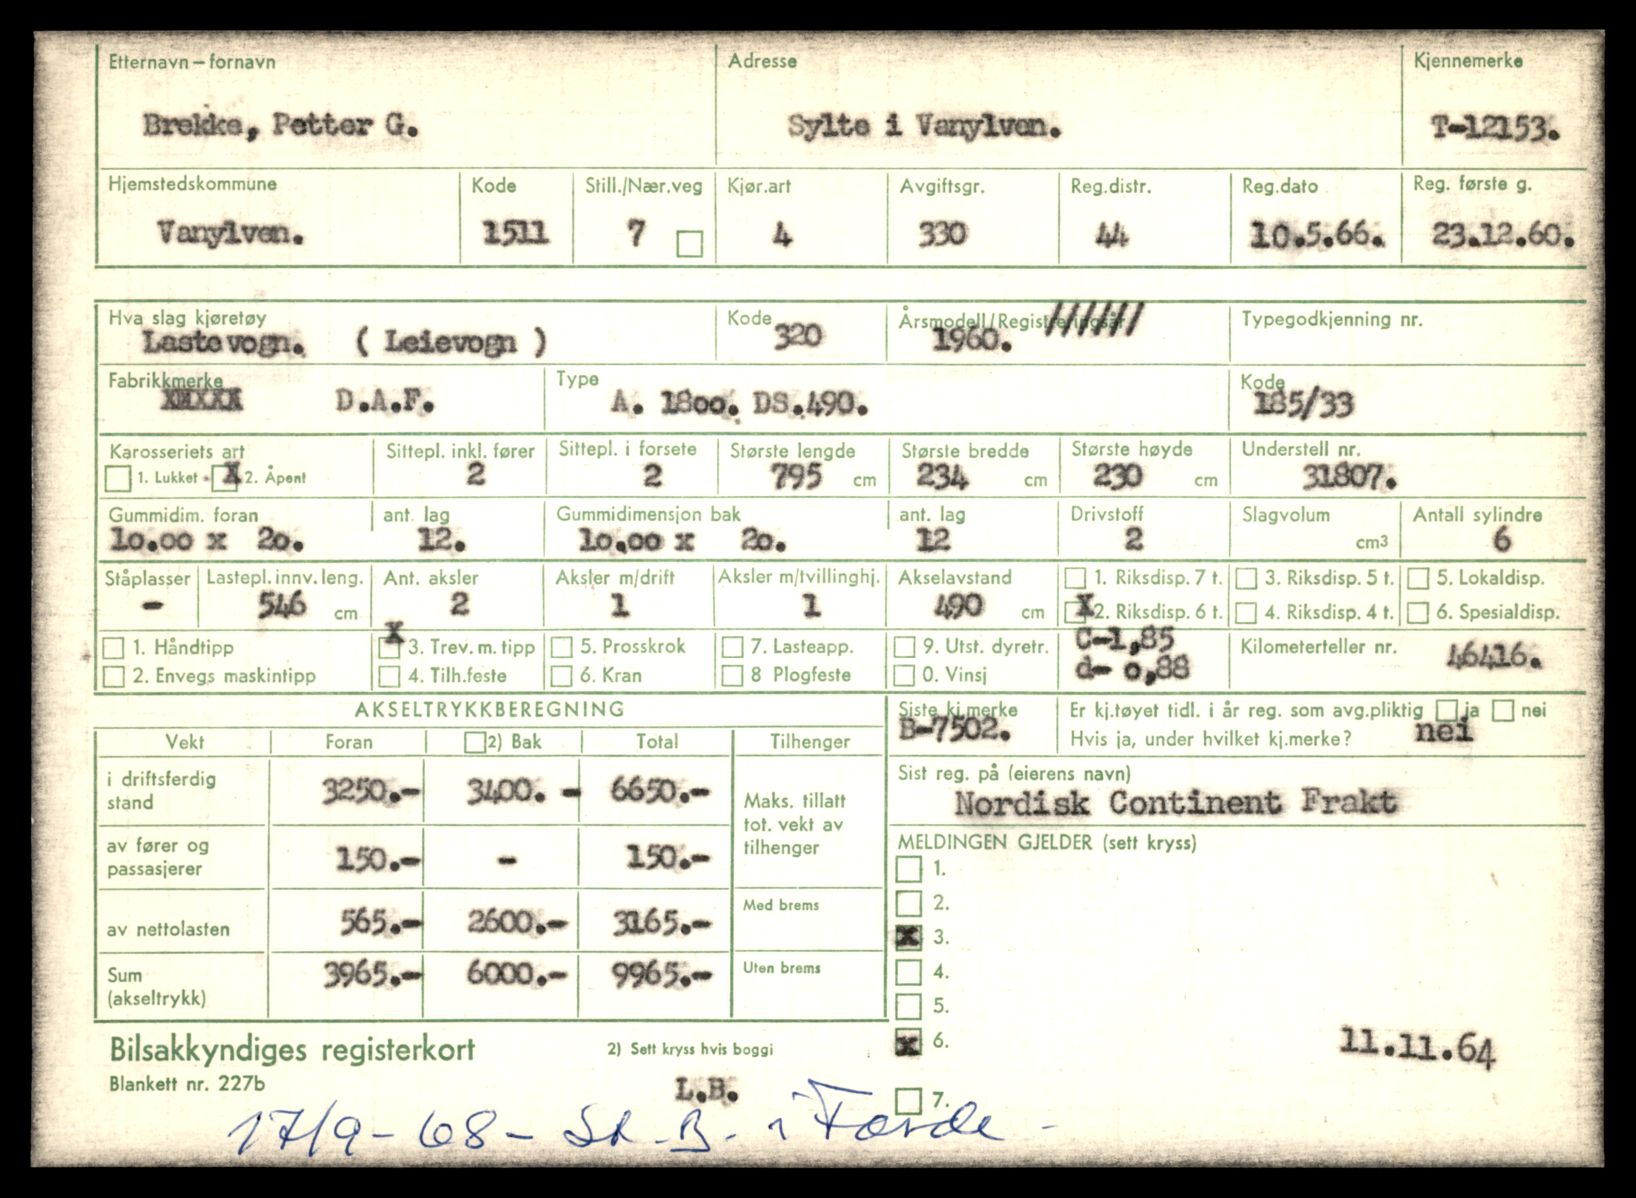 Etternavn – fornavn Adresse Kjennemerke
Brekke, Petter G. Sylte i Vanylven. T-12153.
Hjemstedskommune Kode Still./Nær.veg Kjør.art Avgiftsgr. Reg.distr. Reg.dato Reg. første g.
Vanylven. 1511 7 4 330 44 10.5.66. 23.12.60.
Hva slag kjøretøy Kode Årsmodell/Registreringsår Typegodkjenning nr.
Lastevogn. ( Leievogn ) 320 1960. //////
Fabrikkmerke Type Kode
XXXXX D.A.F. A. 18oo. DS.490. 185/33
Karosseriets art Sittepl. inkl. fører Sittepl. i forsete Største lengde Største bredde Største høyde Understell nr.
1. Lukket X 2. Åpent 2 2 795 cm 234 cm 230 cm 31807.
Gummidim. foran ant. lag Gummidimensjon bak ant. lag Drivstoff Slagvolum Antall sylindre
1o.oo x 2o. 12. 1o.oo x 2o. 12 2 cm3 6
Ståplasser Lastepl. innv. leng. Ant. aksler Aksler m/drift Aksler m/tvillinghj. Akselavstand 1. Riksdisp. 7 t. 3. Riksdisp. 5 t. 5. Lokaldisp.
- 546 cm 2 1 1 490 cm X 2. Riksdisp. 6 t. 4. Riksdisp. 4 t. 6. Spesialdisp.
1. Håndtipp X 3. Trev. m. tipp 5. Prosskrok 7. Lasteapp. 9. Utst. dyretr. C-1,85 Kilometerteller nr. 46416.
2. Envegs maskintipp 4. Tilh.feste 6. Kran 8 Plogfeste 0. Vinsj d- o,88
AKSELTRYKKBEREGNING
Vekt Foran 2) Bak Total Tilhenger
i driftsferdig stand 3250.- 3400. - 6650.-
Maks. tillatt
tot. vekt av
tilhenger
av fører og passasjerer 150.- - 150.-
av nettolasten 565.- 2600.- 3165.- Med brems
Sum (akseltrykk) 3965.- 6000.- 9965.- Uten brems
Siste kj.merke Er kj.tøyet tidl. i år reg. som avg.pliktig ja nei
B-7502. Hvis ja, under hvilket kj.merke? nei
Sist reg. på (eierens navn)
Nordisk Continent Frakt
MELDINGEN GJELDER (sett kryss)
1.
2.
X 3.
4.
5.
X 6. 11.11.64
7.
Bilsakkyndiges registerkort 2) Sett kryss hvis boggi
Blankett nr. 227b L.B.
17/9-68- St. B. i Førde -